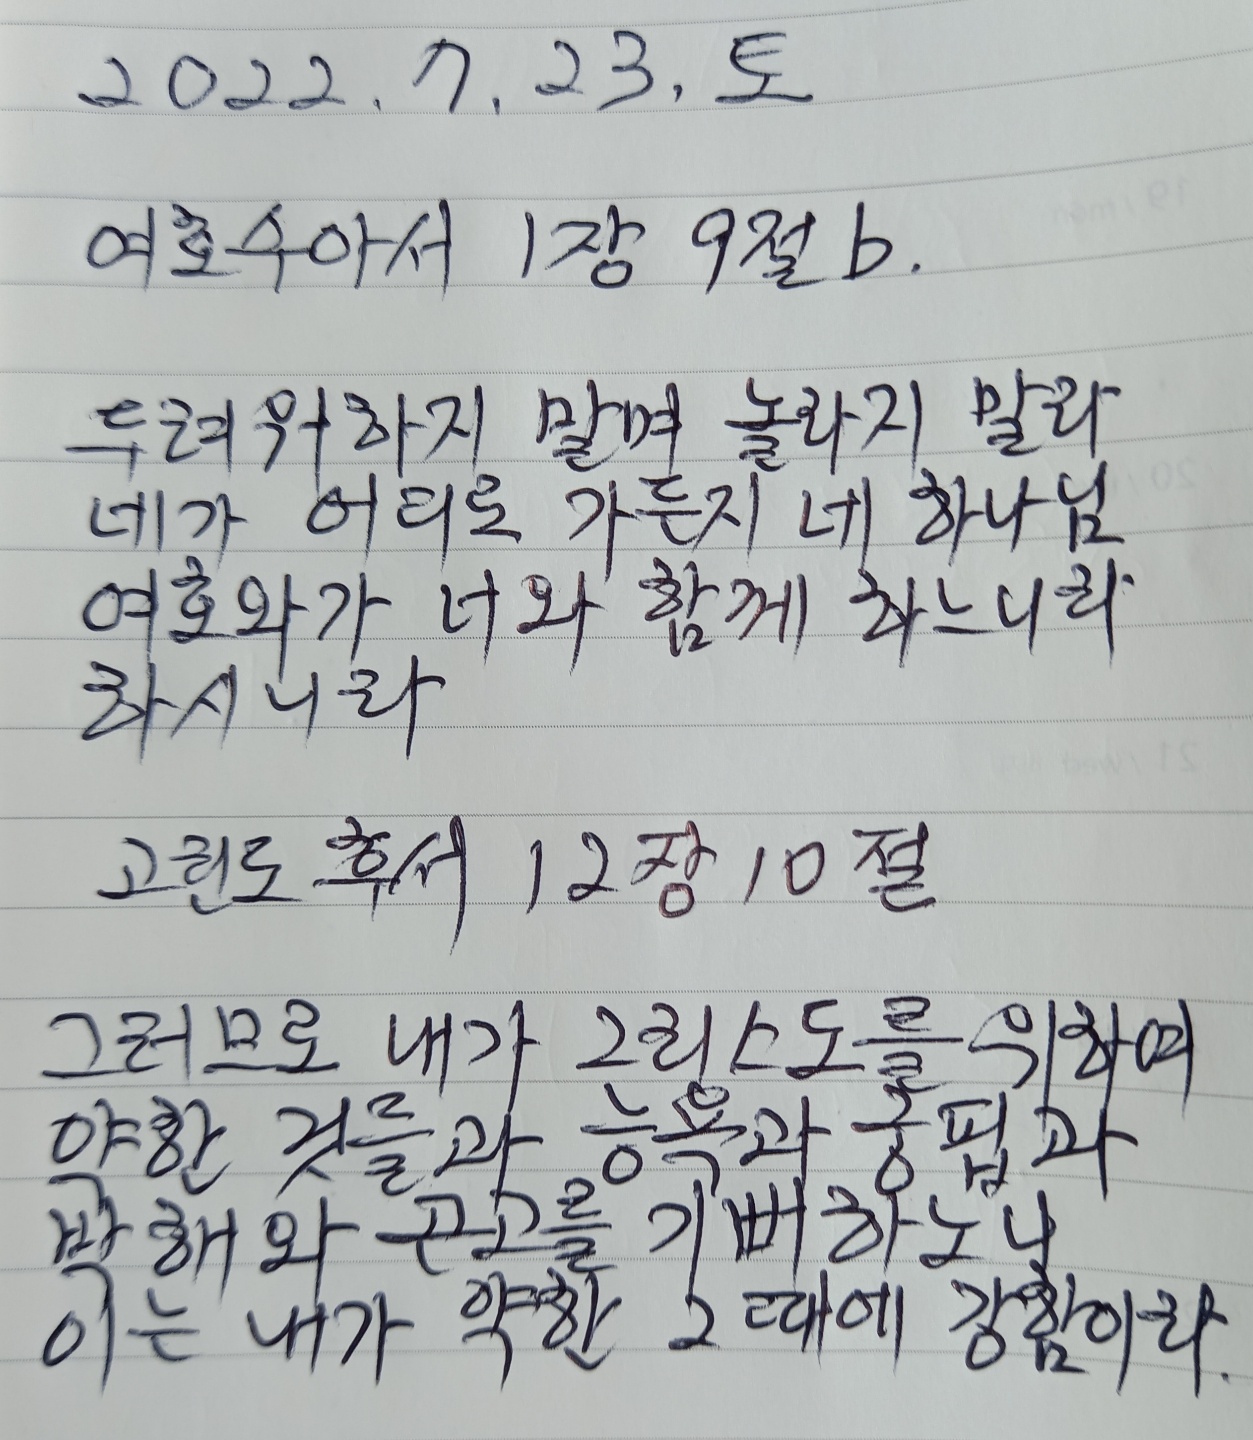 2022. 7. 23. 토
여호수아서 1장 9절 b.
두려워하지 말며 놀라지 말라
네가 어디로 가든지 네 하나님
여호와가 너와 함께 하느니라
하시니라
고린도 후서 12장 10절
그러므로 내가 그리스도를 위하여
약한 것들과 능욕과 궁핍과
박해와 곤고를 기뻐하노니
이는 내가 약한 그 때에 강함이라.